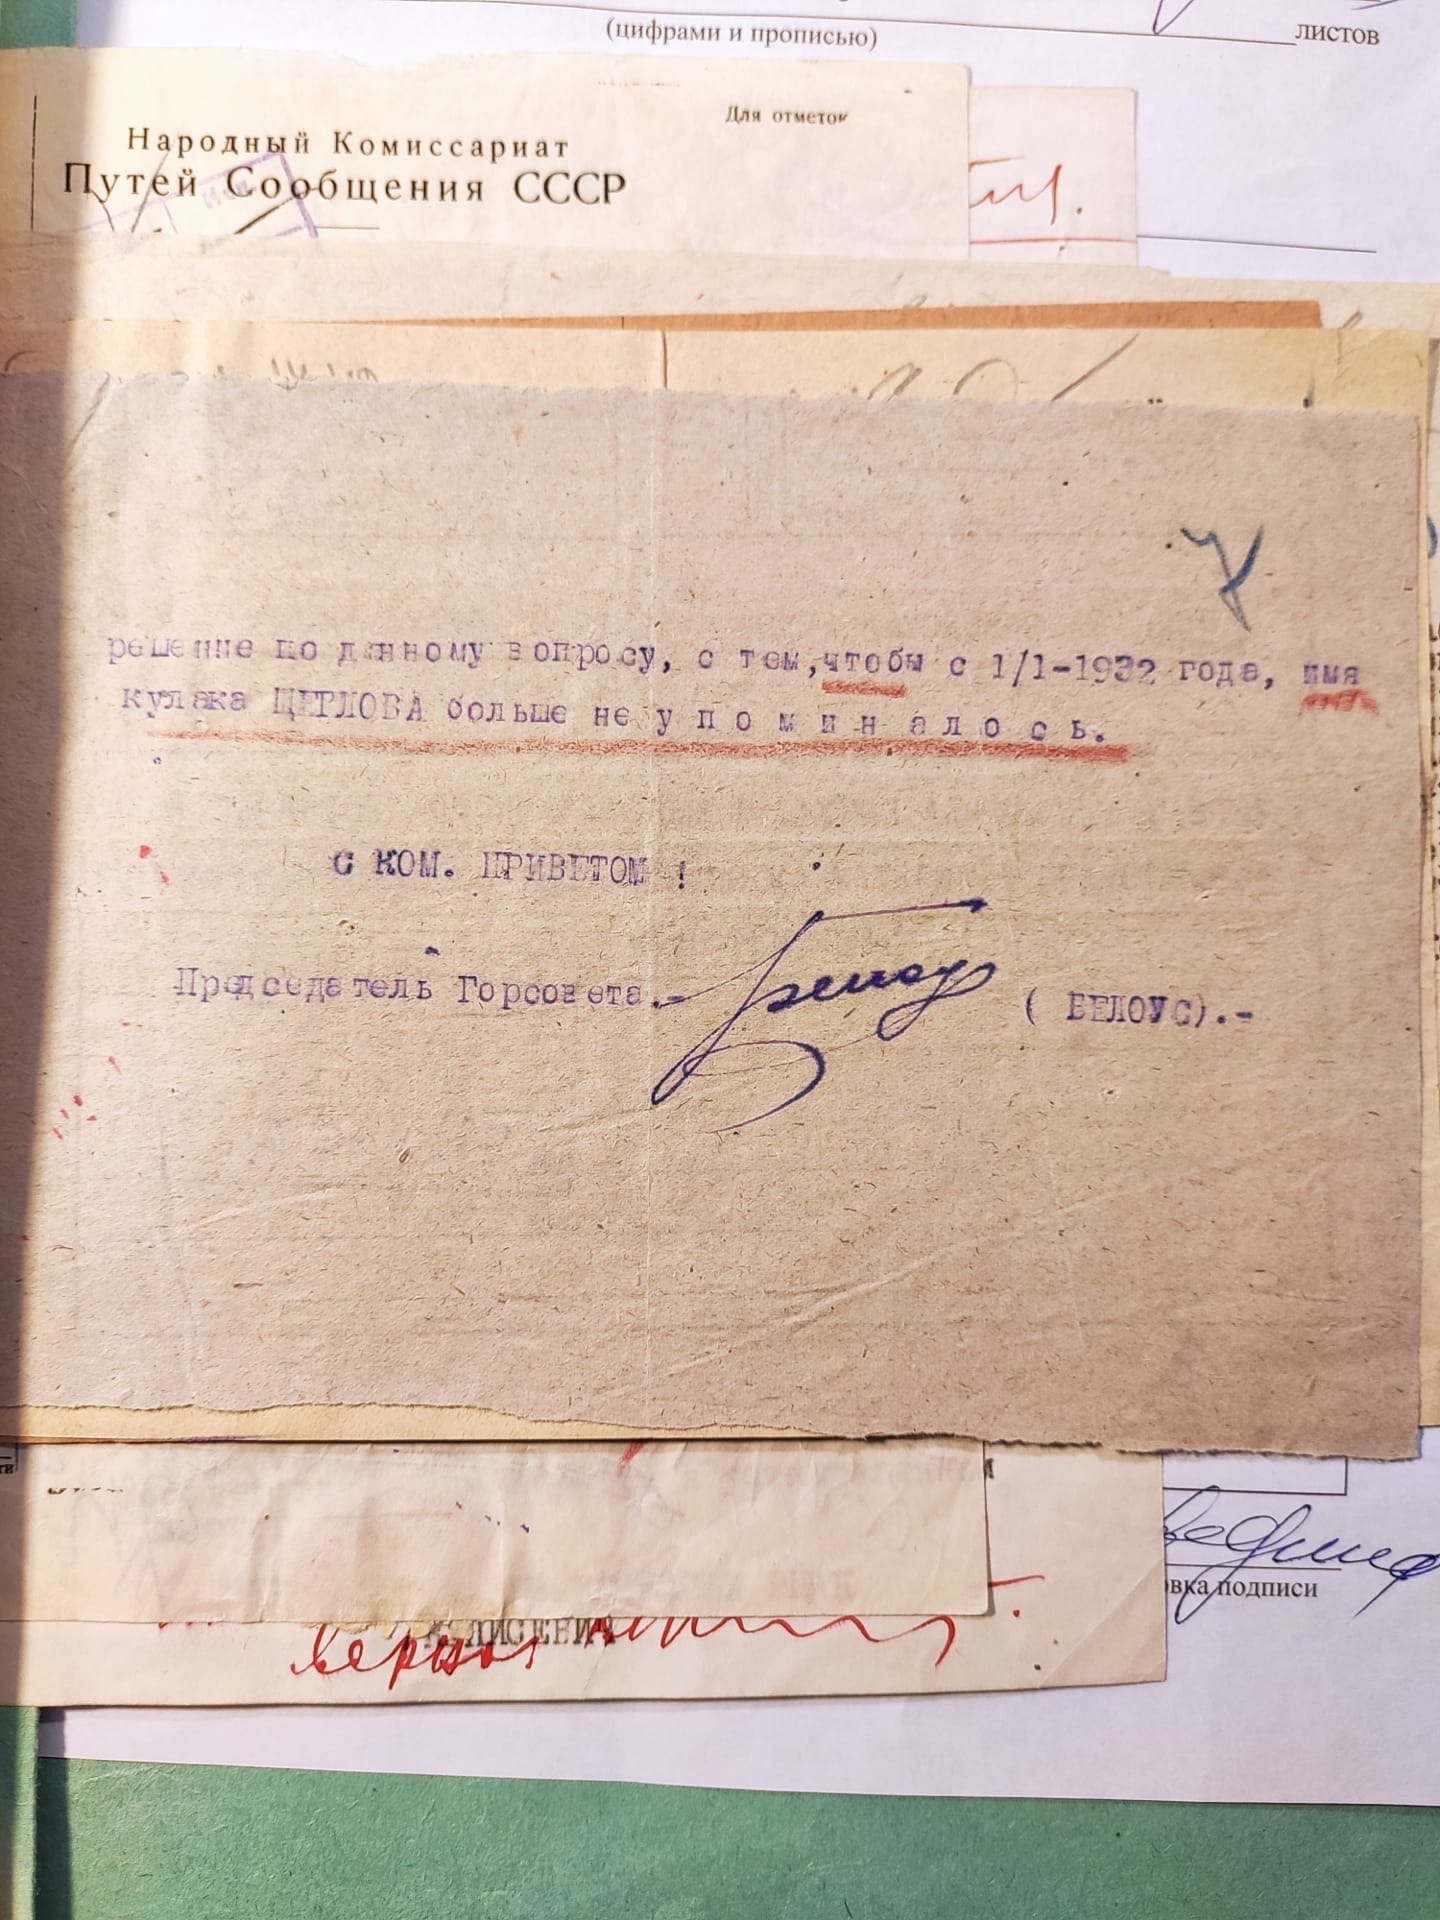 (цифрами и прописью)
листов
Для отметок
Народный Комиссариат
Путей Сообщения СССР
решение по данному вопросу, с тем,чтобы с 1/1-1932 года, имя
кулака ЦЕГЛОВА больше не у п о м и н а л о с ь.
С КОМ. ПРИВЕТОМ !
Председатель Горсовета.-
( БЕЛОУС).-
вка подписи